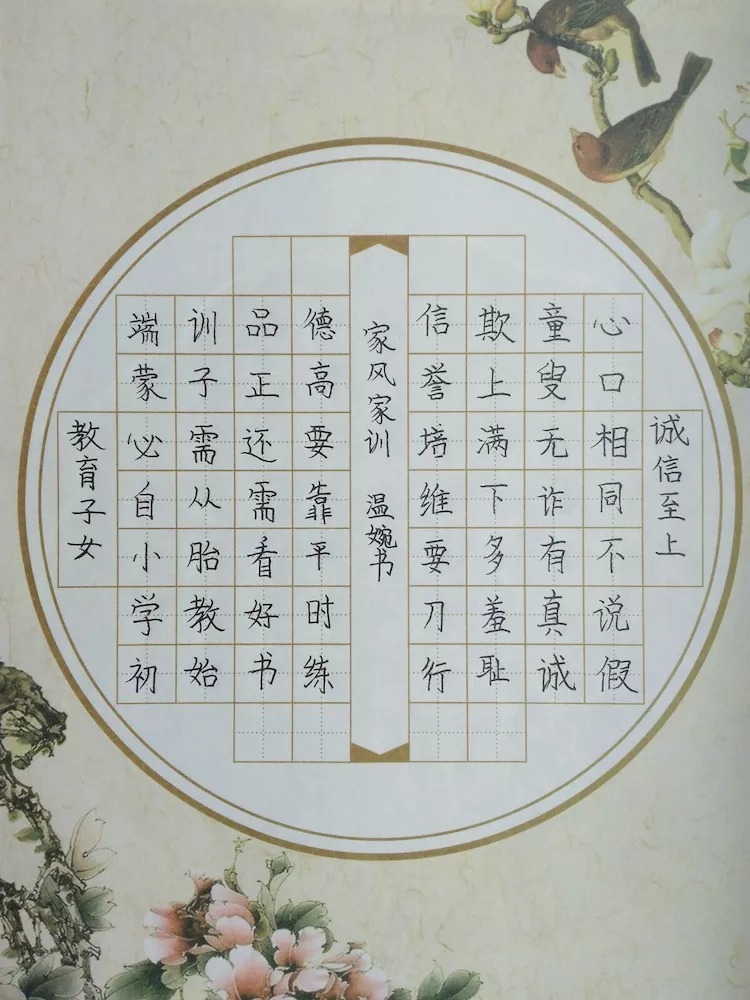 诚信至上
心口相同不说假
童叟无诈有真诚
欺上满下多羞耻
信誉培维要刀行
家风家训 温婉书
德高要靠平时练
品正还需看好书
训子需从胎教始
端蒙必自小学初
教育子女